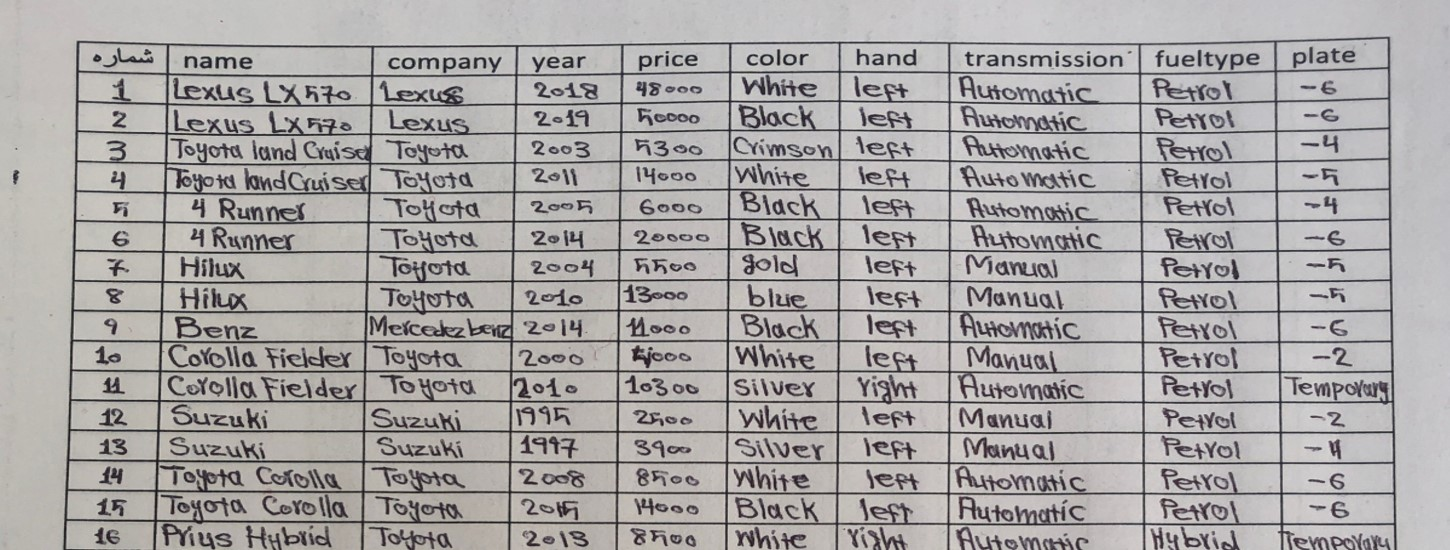 شماره name company year price color hand transmission fueltype plate
1 Lexus LX570 Lexus 2018 48000 White left Automatic Petrol -6
2 Lexus LX570 Lexus 2019 50000 Black left Automatic Petrol -6
3 Toyota land Cruiser Toyota 2003 5300 Crimson left Automatic Petrol -4
4 Toyota land Cruiser Toyota 2011 14000 White left Automatic Petrol -5
5 4 Runner Toyota 2005 6000 Black left Automatic Petrol -4
6 4 Runner Toyota 2014 20000 Black left Automatic Petrol -6
7 Hilux Toyota 2004 5500 gold left Manual Petrol -5
8 Hilux Toyota 2010 13000 blue left Manual Petrol -5
9 Benz Mercedez benz 2014 11000 Black left Automatic Petrol -6
10 Corolla Fielder Toyota 2000 White left Manual Petrol -2
11 Corolla Fielder Toyota 2010 10300 Silver right Automatic Petrol Temporary
12 Suzuki Suzuki 1995 2500 White left Manual Petrol -2
13 Suzuki Suzuki 1997 3900 Silver left Manual Petrol -4
14 Toyota Corolla Toyota 2008 8500 White left Automatic Petrol -6
15 Toyota Corolla Toyota 2015 14000 Black left Automatic Petrol -6
16 Prius Hybrid Toyota 2013 8500 White right Automatic Hybrid Temporary